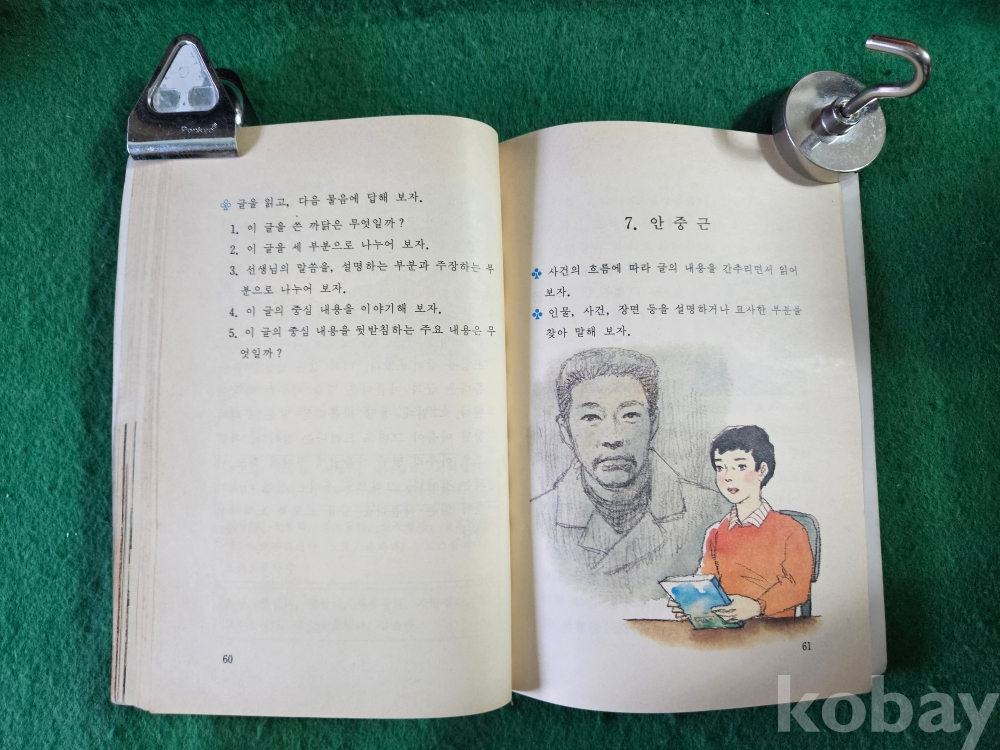 글을 읽고, 다음 물음에 답해 보자.
1. 이 글을 쓴 까닭은 무엇일까?
2. 이 글을 세 부분으로 나누어 보자.
3. 선생님의 말씀을, 설명하는 부분과 주장하는 부
분으로 나누어 보자.
4. 이 글의 중심 내용을 이야기해 보자.
5. 이 글의 중심 내용을 뒷받침하는 주요 내용은 무
엇일까?
60
7. 안 중 근
사건의 흐름에 따라 글의 내용을 간추리면서 읽어
보자.
인물, 사건, 장면 등을 설명하거나 묘사한 부분을
찾아 말해 보자.
61
kobay